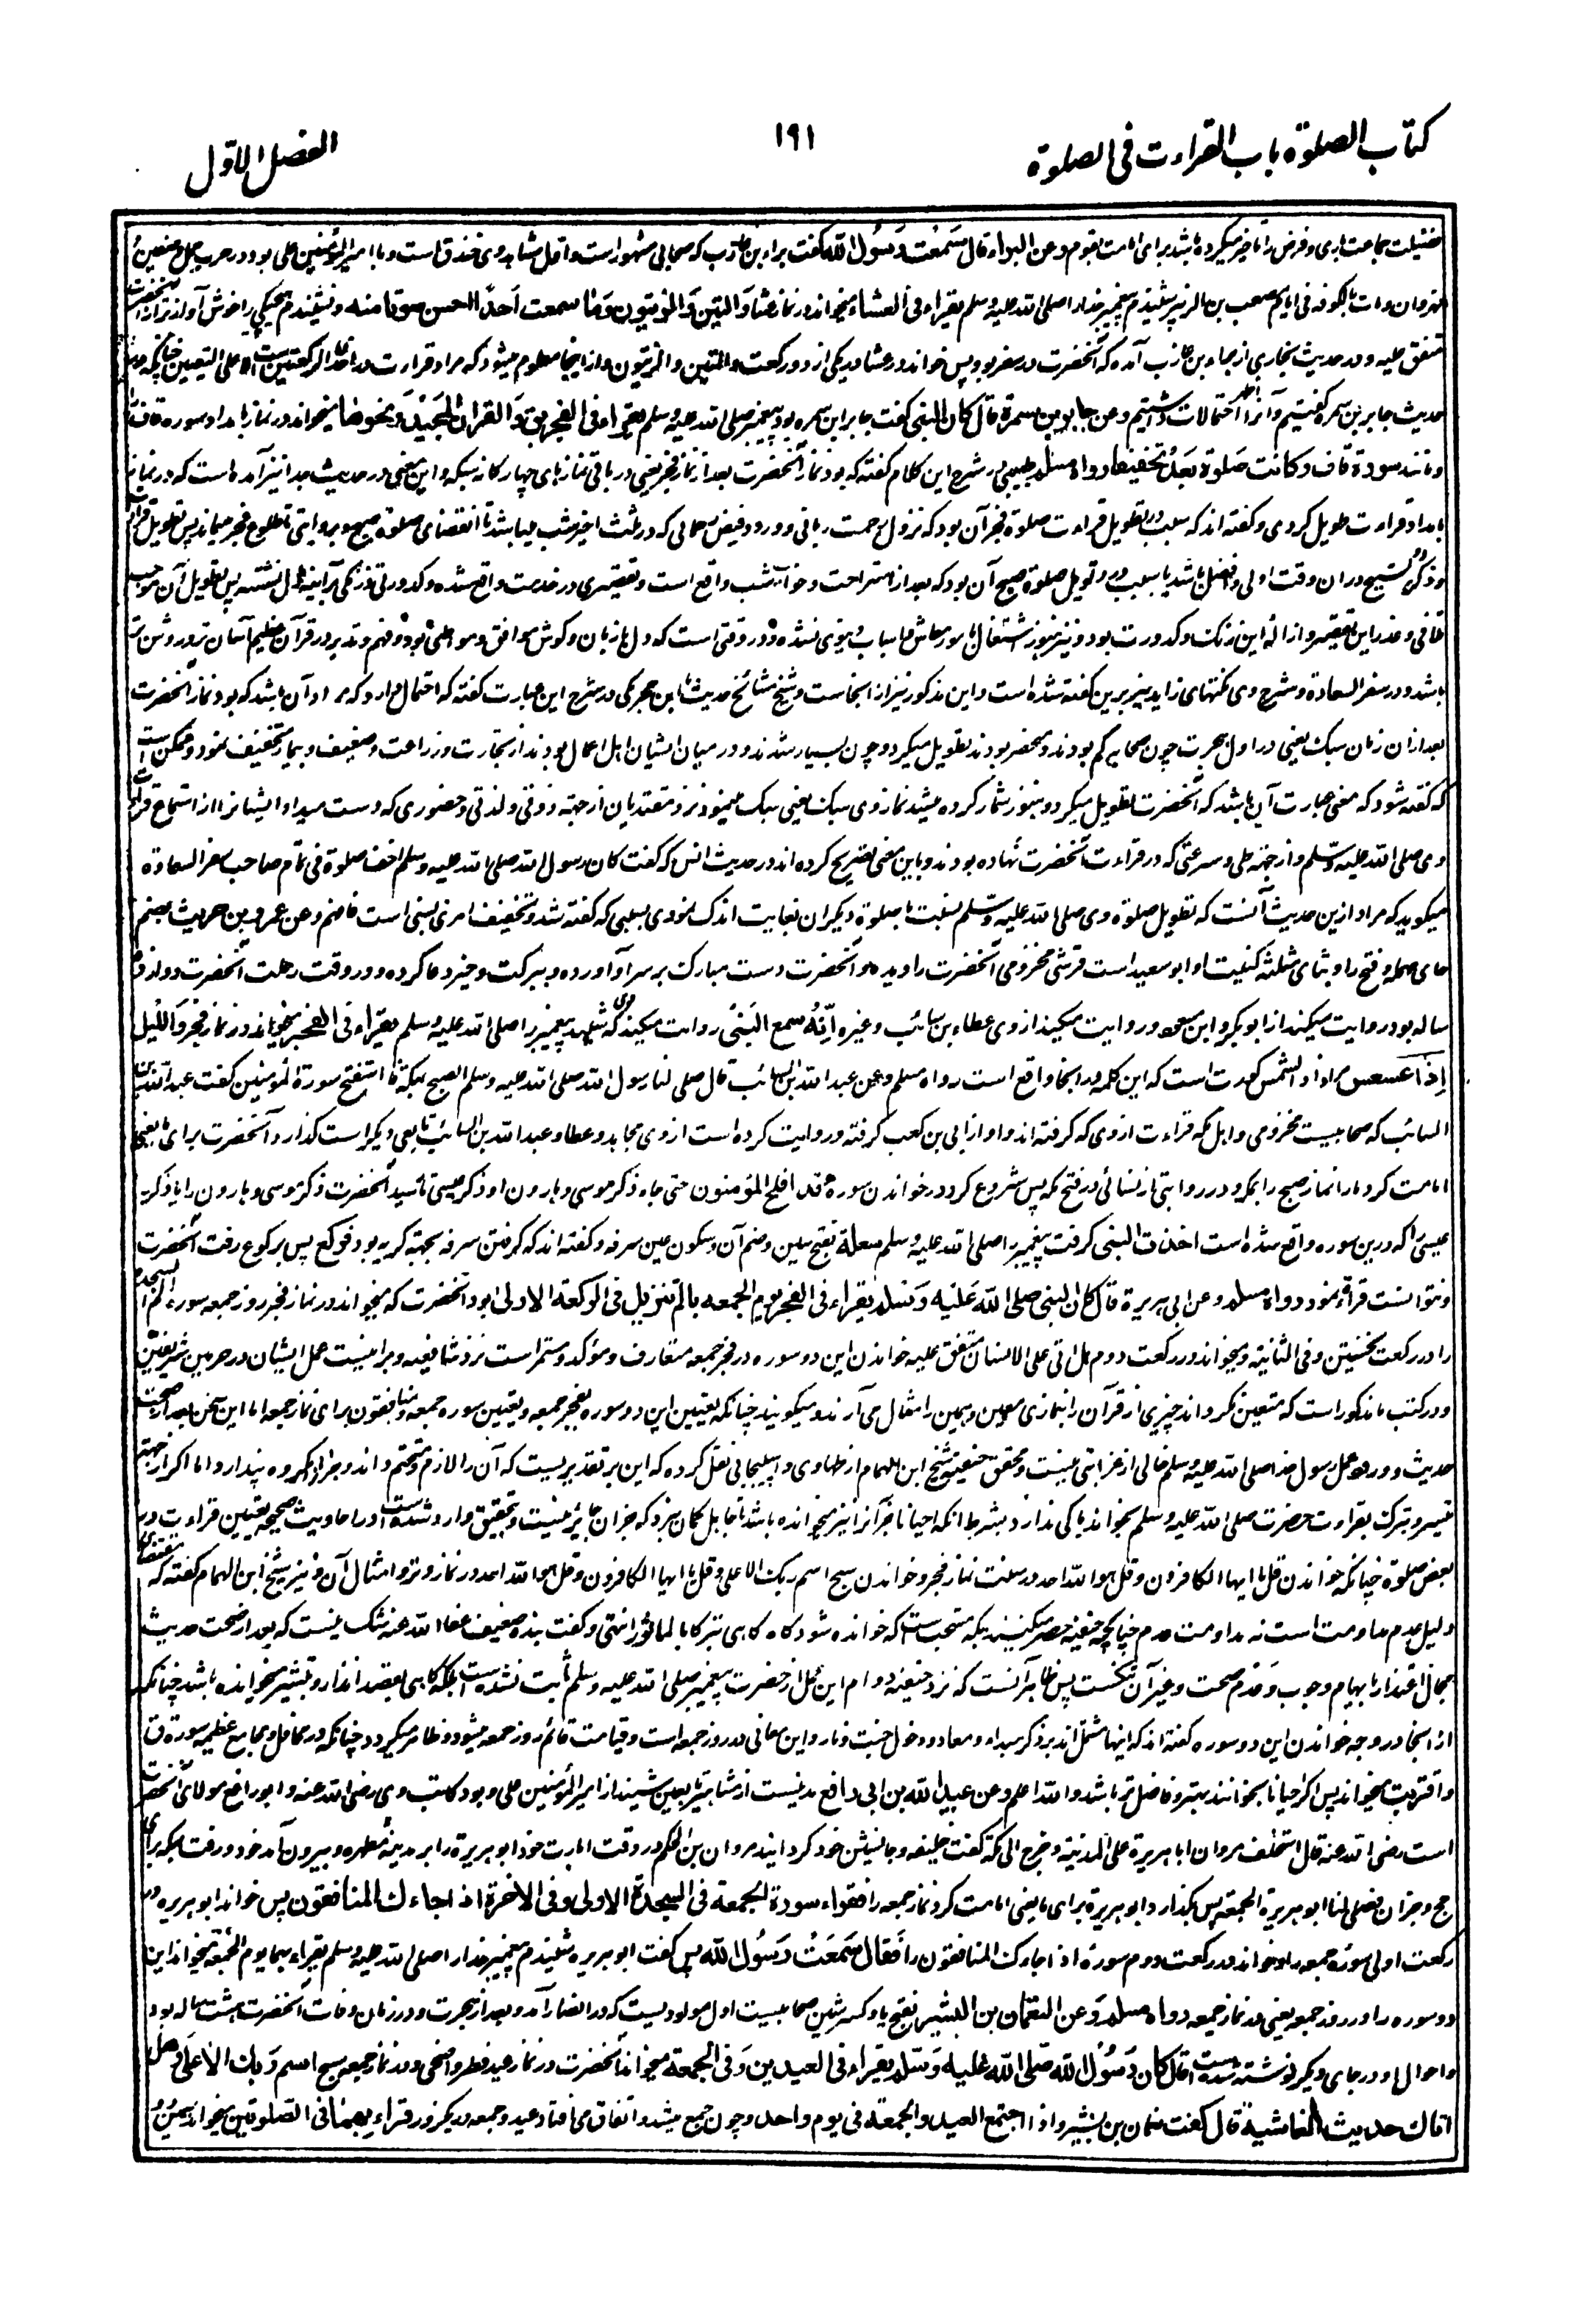 كتاب الصلوة باب القراءت فى الصلوة
١٩١
الفصل الاوّل
فضیلت جماعت بری و فرض را تاخیر میکرده باشد برای امامت بقوم وعن البراء قال سَمِعْتُ رَسُولَ اللّٰه گفت براء بن عازب که صحابی مشهور است و اول مشاهد وی خندق است و با امیرالمؤمنین علی بود در حرب جمل و صفین و
نهروان و مات بالکوفه فی ایام مصعب بن الزبیر شنیدم پیغمبر خدا را صلی الله علیه وسلم یقراء فی العشاء میخواند در نماز عشا وَالتِّینِ وَالزَّیتُونِ وَمَا سمعت اَحدًا احسن صوتا منه و نشنیدم هیچ یکی را خوش آواز تر از آنحضرت
متفق علیه و در حدیث بخاری از براء بن عازب آمده که آنحضرت در سفر بود پس خواند در عشا در یکی از دو رکعت والتین والزیتون و از اینجا معلوم میشود که مراد قراءت در احدی الرکعتین است لا علی التعیین چنانکه در
حدیث جابر بن سمره گفتیم و آنرا احتمالات نوشتیم وعن جابر بن سمرة قال کان النبی گفت جابر ابن سمره بود پیغمبر صلی الله علیه وسلم یقراء فی الفجر بق وَالقراٰن المَجِیْدِ وَنحوها میخواند در نماز بامداد سوره قاف را
و مانند سورة قاف وکانت صَلوٰة بَعْدُ تخفیفا رواه مسلم طیبی در شرح این کلام گفته که بود نماز آنحضرت بعد از نماز فجر یعنی در باقی نمازهای چهارگانه سبک و این معنی در حدیث جدا نیز آمده است که در نماز
بامداد قراءت طویل کردی و گفته اند که سبب در تطویل قراءت صلوة فجر آن بود که نزول رحمت ربانی و ورود فیض رحمانی که در ثلث اخیر شب میباشد تا انقضای صلوة صبح و بروایتی تا طلوع فجر میماند پس تطویل قراءت
و ذکر و تسبیح در ان وقت اولی و افضل باشد یا سبب در تطویل صلوة صبح آن بود که بعد از استراحت و خواب شب واقع است و تقصیری در خدمت واقع شده و کدورتی و زنگی بر آیینه دل نشسته پس تطویل آن موجب
تلافی و عذر این تقصیر و ازالهٔ این زنگ و کدورت بود و نیز هنوز اشتغال بامور معاش و اسباب دنیوی نشده و در وقتی است که دل با زبان و گوش موافق و مواطی بود و فهم و تدبر در قرآن عظیم آسان تر و روشن تر
باشد و در سفر السعادة و شرح وی نکتهای زاید نیز برین گفته شده است و این مذکور نیز از انجاست و شیخ مشائخ حدیث ما ابن حجر مکی در شرح این عبارت گفته که احتمال دارد که مراد آن باشد که بود نماز آنحضرت
بعد ازان زمان سبک یعنی در اول هجرت چون صحابه کم بودند و منحصر بودند تطویل میکرد و چون بسیار شدند و در میان ایشان اهل اعمال بودند از تجارت و زراعت و ضعیف و بیمار تخفیف نمود و ممکن است
که گفته شود که معنی عبارت آن باشد که آنحضرت تطویل میکرد و هنوز شمار کرده میشد نماز وی سبک یعنی سبک مینمود نزد مقتدیان از جهته ذوقی و لذتی و حضوری که دست میداد ایشانرا از استماع قراءت
وی صلی الله علیه وسلم و از جهة طی و سرعتی که در قراءت آنحضرت نهاده بودند و باین معنی تصریح کرده اند در حدیث انس که گفت کان رسول الله صلی الله علیه وسلم اخف صلوة فی تمام صاحب سفر السعادة
میگوید که مراد ازین حدیث آنست که تطویل صلوة وی صلی الله علیه وسلم نسبت با صلوة دیگران بغایت اندک نمودی بسببی که گفته شد و تخفیف امری نسبی است فافهم وعن عمرو بن حریث بضم
حای مهمله و فتح را و ثای مثلثه کنیت او ابو سعید است قرشی مخزومی آنحضرت را دیده و آنحضرت دست مبارک بر سر او آورده و ببرکت و خیر دعا کرده و در وقت رحلت آنحضرت دوازده
ساله بود روایت میکند از ابوبکر و ابن مسعود و روایت میکند از وی عطاء بن سائب و غیره اَنَّهُ سمع النَبیَّ روایت میکند که وی شنید پیغمبر را صلی الله علیه وسلم یقراء فی الفجر میخواند در نماز فجر وَاللَّیل
اِذَا عسعس مراد اذا الشمس کورت است که این کلمه در انجا واقع است رواه مسلم وعن عبد الله بن السائب قال صلی لنا رسول الله صلی الله علیه وسلم الصبح بمکة فاستفتح سورة المؤمنین گفت عبد الله بن
السائب که صحابیست مخزومی و اهل مکه قراءت از وی گرفته اند و او از ابی بن کعب گرفته و روایت کرده است از وی مجاهد و عطا و عبد الله بن السائب تابعی دیگر است گذارد آنحضرت برای ما یعنی
امامت کرد مارا نماز صبح را بمکه و در روایتی از نسائی در فتح مکه پس شروع کرد در خواندن سوره قد افلح المؤمنون حتی جاء ذکر موسی وهارون او ذکر عیسی تا رسید آنحضرت ذکر موسی و هارون را یا ذکر
عیسی را که درین سوره واقع شده است اخذت النبی گرفت پیغمبر را صلی الله علیه وسلم سعلة بفتح سین و ضم آن و سکون عین سرفه و گفته اند که گرفتن سرفه بجهته گریه بود فرکع پس برکوع رفت آنحضرت
و نتوانست قراءة نمود رواه مسلم وعن ابی هریرة قال کان النبی صلی اللّٰه عَلَیْه وَسَلم یقراء فی الفجر یوم الجمعه بالم تنزیل فی الرکعة الاولی بود آنحضرت که میخواند در نماز فجر روز جمعه سوره الم السجده
را در رکعت نخستین وفی الثانیة و میخواند در رکعت دوم هل اتی علی الانسان متفق علیه خواندن این دو سوره در فجر جمعه متعارف و مؤکد و مستمر است نزد شافعیه و برانیست عمل ایشان در حرمین شریفین
و در کتب ما مذکور است که متعین نگرداند چیزی از قرآن را بنمازی معین و همین را مثال می آرند و میگویند چنانکه تعیین این دو سوره بفجر جمعه و تعیین سوره جمعه و منافقون برای نماز جمعه اما این سخن بعد از صحت
حدیث و ورود عمل رسول خدا صلی الله علیه وسلم خالی از غرابتی نیست و محقق حنفیه شیخ ابن الهمام از طحاوی و اسبیجابی نقل کرده که این بر تقدیریست که آن را لازم و متحتم داند و جز آنرا مکروه پندارد اما اگر از جهتِ
تیسیر و تبرک بقراءت حضرت صلی الله علیه وسلم بخواند باکی ندارد بشرط انکه احیانا جز آنرا نیز میخوانده باشد تا جاهل گمان نبرد که جز آن جایز نیست و بتحقیق وارد شده است در احادیث صحیحه تعیین قراءت در
بعض صلوة چنانکه خواندن قل یا ایها الکافرون و قل هو الله احد در سنت نماز فجر و خواندن سبح اسم ربک الاعلی و قل یا ایها الکافرون و قل هو الله احد در نماز وتر و امثال آن و نیز شیخ ابن الهمام گفته که مقتضای
دلیل عدم مداومت است نه مداومت عدم چنانچه حنفیه حصر میکنند بلکه مستحب است که خوانده شود گاه گاهی تبرکا بالماثور انتهی و گفت بنده ضعیف عفا الله عنه شک نیست که بعد از صحت حدیث
مجال اعتذار بایهام وجوب و عدم صحت و غیر آن تنگست پس ظاهر آنست که نزد حنفیه دوام این عمل از حضرت پیغمبر صلی الله علیه وسلم ثابت نشده است بلکه گاهی بقصد انذار و تبشیر میخوانده باشد چنانکه
از انجا در وجه خواندن این دو سوره گفته اند که اینها مشتمل اند بر ذکر مبداء و معاد و دخول جنت و نار و این معانی در روز جمعه است و قیامت قائم روز جمعه میشود و ظاهر میگردد چنانکه در محافل و مجامع عظیمه سورة ق
و اقتربت میخواند پس اگر احیانا بخوانند بهتر و فاضل تر باشد والله اعلم وعن عبید الله بن ابی رافع مدنیست از مشاهیر تابعین شنید از امیر المؤمنین علی و بود کاتب وی رضی الله عنه و ابو رافع مولای آنحضرت
است رضی الله عنه قال استخلف مروان ابا هریرة علی المدینة وخرج الی مکة گفت خلیفه و جانشین خود گردانید مروان بن الحکم در وقت امارت خود ابو هریرة را بر مدینهٔ مطهره و بیرون آمد خود و رفت بمکه برای
حج و جز ان فصلی لنا ابو هریرة الجمعة پس بگذارد ابو هریرة برای ما یعنی امامت کرد نماز جمعه را فقراء سورة الجمعة فی السجدة الاولی وفی الآخرة اذا جاءك المنافقون پس خواند ابو هریره در
رکعت اولی سوره جمعه را و خواند در رکعت دوم سورة اذا جاءک المنافقون را فَقَال سَمِعْتُ رَسُولَ اللّٰه پس گفت ابو هریره شنیدم پیغمبر خدا را صلی الله علیه وسلم یقراء بهما یوم الجمعة میخواند این
دو سوره را در روز جمعه یعنی در نماز جمعه رواه مسلم وَعن النعمان بن البشیر بفتح با و کسر شین صحابیست اول مولودیست که در انصار آمد بعد از هجرت و در زمان وفات آنحضرت هشت ساله بود
و احوال او در جای دیگر نوشته شده است قال کان رَسُوْل اللّٰه صَلی اللّٰه عَلیه وَسَلم یقراء فی العیدین وَفی الجمعة میخواند آنحضرت در نماز عید فطر و اضحی و در نماز جمعه سبح اسم رَبك الاعلی وَهل
اتاك حدیث الغاشیة قال گفت نعمان بن بشیر واذا اجتمع العید والجمعة فی یوم واحد و چون جمع میشد و اتفاق می افتاد عید و جمعه در یکروز قراء بهما فی الصلوتین میخواند همین دو